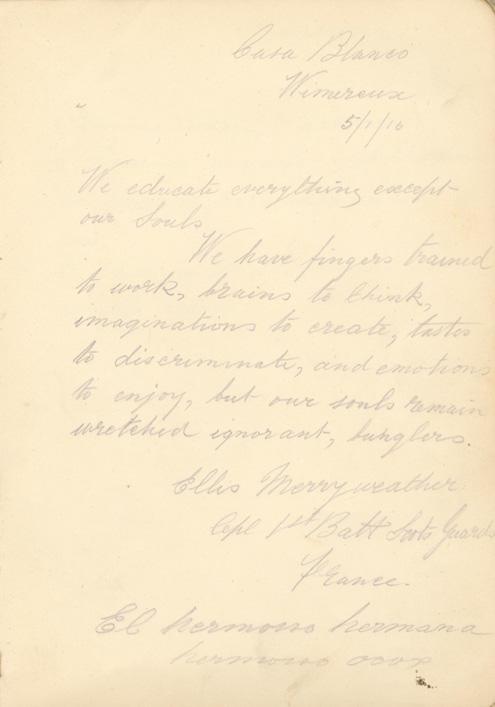 Casa Blanco
Wimereux
5/1/16
We educate everything except
our souls
We have fingers trained
to work, brains to think,
imaginations to create, tastes
to discriminate, and emotions
to enjoy, but our souls remain
wretched ignorant, bunglers.
Ellis Merryweather.
Cpl 1st Batt Scots Guards
France.
El hermoso hermana
hermoso